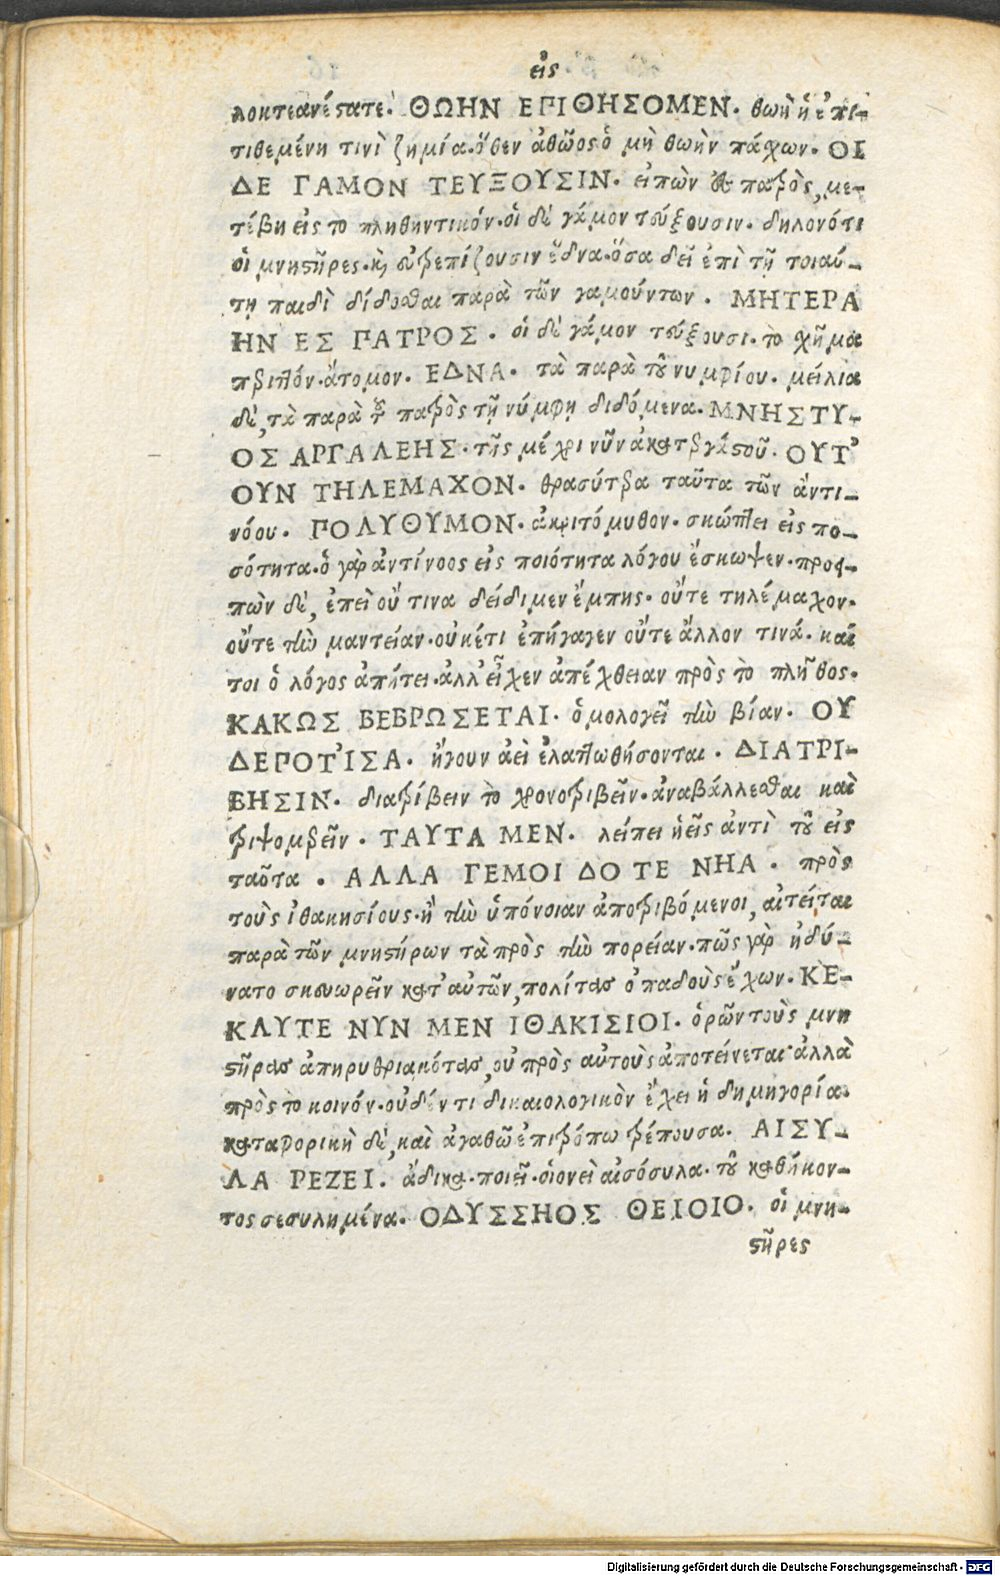 εἰς
λοιπεανέστατε. ΘΩΗΝ ΕΠΙΘΗΣΟΜΕΝ. θωὴ ἡ ἐπι-
τιθεμένη τινὶ ζημία. ὅθεν ἀθῶος ὁ μὴ θωὴν πάσχων. ΟΙ
ΔΕ ΓΑΜΟΝ ΤΕΥΞΟΥΣΙΝ. εἰπὼν ἐκ πατρὸς, με-
τέβη εἰς το πληθυντικόν. οἱ δὲ γάμον τεύξουσιν. δηλονότι
οἱ μνηστῆρες. καὶ εὐτρεπίζουσιν ἕδνα. ὅσα δεῖ ἐπὶ τῇ τοιαύ-
τῃ παιδὶ δίδοσθαι παρὰ τῶν γαμούντων. ΜΗΤΕΡΑ
ΗΝ ΕΣ ΠΑΤΡΟΣ. οἱ δὲ γάμον τεύξουσι. τὸ σχῆμα
άτομον. ΕΔΝΑ. τὰ παρὰ τοῦ νυμφίου. μείλια
δὲ, τὰ παρὰ τοῦ πατρὸς τῇ νύμφῃ διδόμενα. ΜΝΗΣΤΥ-
ΟΣ ΑΡΓΑΛΕΗΣ. τῆς μέχρι νῦν ἀκατεργάστου. ΟΥΤ'
ΟΥΝ ΤΗΛΕΜΑΧΟΝ. θρασύτερα ταῦτα τῶν ἀντι-
νόου. ΠΟΛΥΘΥΜΟΝ. ἀκριτόμυθον. σκώπτει εἰς πο-
σότητα. ὁ γὰρ ἀντίνοος εἰς ποιότητα λόγου ἔσκωψεν. προσ-
πὼν δὲ, ἐπεὶ οὔ τινα δείδιμεν ἔμπης. οὔτε τηλέμαχον.
οὔτε τὴν μαντείαν. οὐκέτι ἐπήγαγεν οὔτε ἄλλον τινά. καί
τοι ὁ λόγος ἀπῄτει. ἀλλ' εἶχεν ἀπέχθειαν πρὸς τὸ πλῆθος.
ΚΑΚΩΣ ΒΕΒΡΩΣΕΤΑΙ. ὁμολογεῖ τὴν βίαν. ΟΥ
ΔΕΠΟΤ'ΙΣΑ. ἤγουν ἀεὶ ἐλαττωθήσονται. ΔΙΑΤΡΙ-
ΒΗΣΙΝ. διατρίβειν τὸ χρονοτριβεῖν. ἀναβάλλεσθαι καὶ
τριψομερεῖν. ΤΑΥΤΑ ΜΕΝ. λείπει ἡ εἰς ἀντὶ τοῦ εἰς
ταῦτα. ΑΛΛΑ ΓΕΜΟΙ ΔΟ ΤΕ ΝΗΑ. πρὸς
τοὺς ἰθακησίους. ἢ τὴν ὑπόνοιαν ἀποτριβόμενοι, αἰτεῖται
παρὰ τῶν μνηστήρων τὰ πρὸς τὴν πορείαν. πῶς γὰρ ἠδύ-
νατο σκευωρεῖν κατ' αὐτῶν, πολίτας ὀπαδοὺς ἔχων. ΚΕ-
ΚΛΥΤΕ ΝΥΝ ΜΕΝ ΙΘΑΚΙΣΙΟΙ. ὁρῶν τοὺς μνη
στῆρας ἀπηρυθριακότας, οὐ πρὸς αὐτοὺς ἀποτείνεται ἀλλὰ
πρὸς το κοινόν. οὐδέν τι δικαιολογικὸν ἔχει ἡ δημηγορία.
καταφορικὴ δὲ, καὶ ἀγαθῶ ἐπιτρόπω πρέπουσα. ΑΙΣΥ-
ΛΑ ΡΕΖΕΙ. ἄδικα. ποιεῖ. οἱονεὶ αἰσόσυλα. τοῦ καθήκον-
τος σεσυλημένα. ΟΔΥΣΣΗΟΣ ΘΕΙΟΙΟ. οἱ μνη-
στῆρες
Digitalisierung gefördert durch die Deutsche Forschungsgemeinschaft - DFG